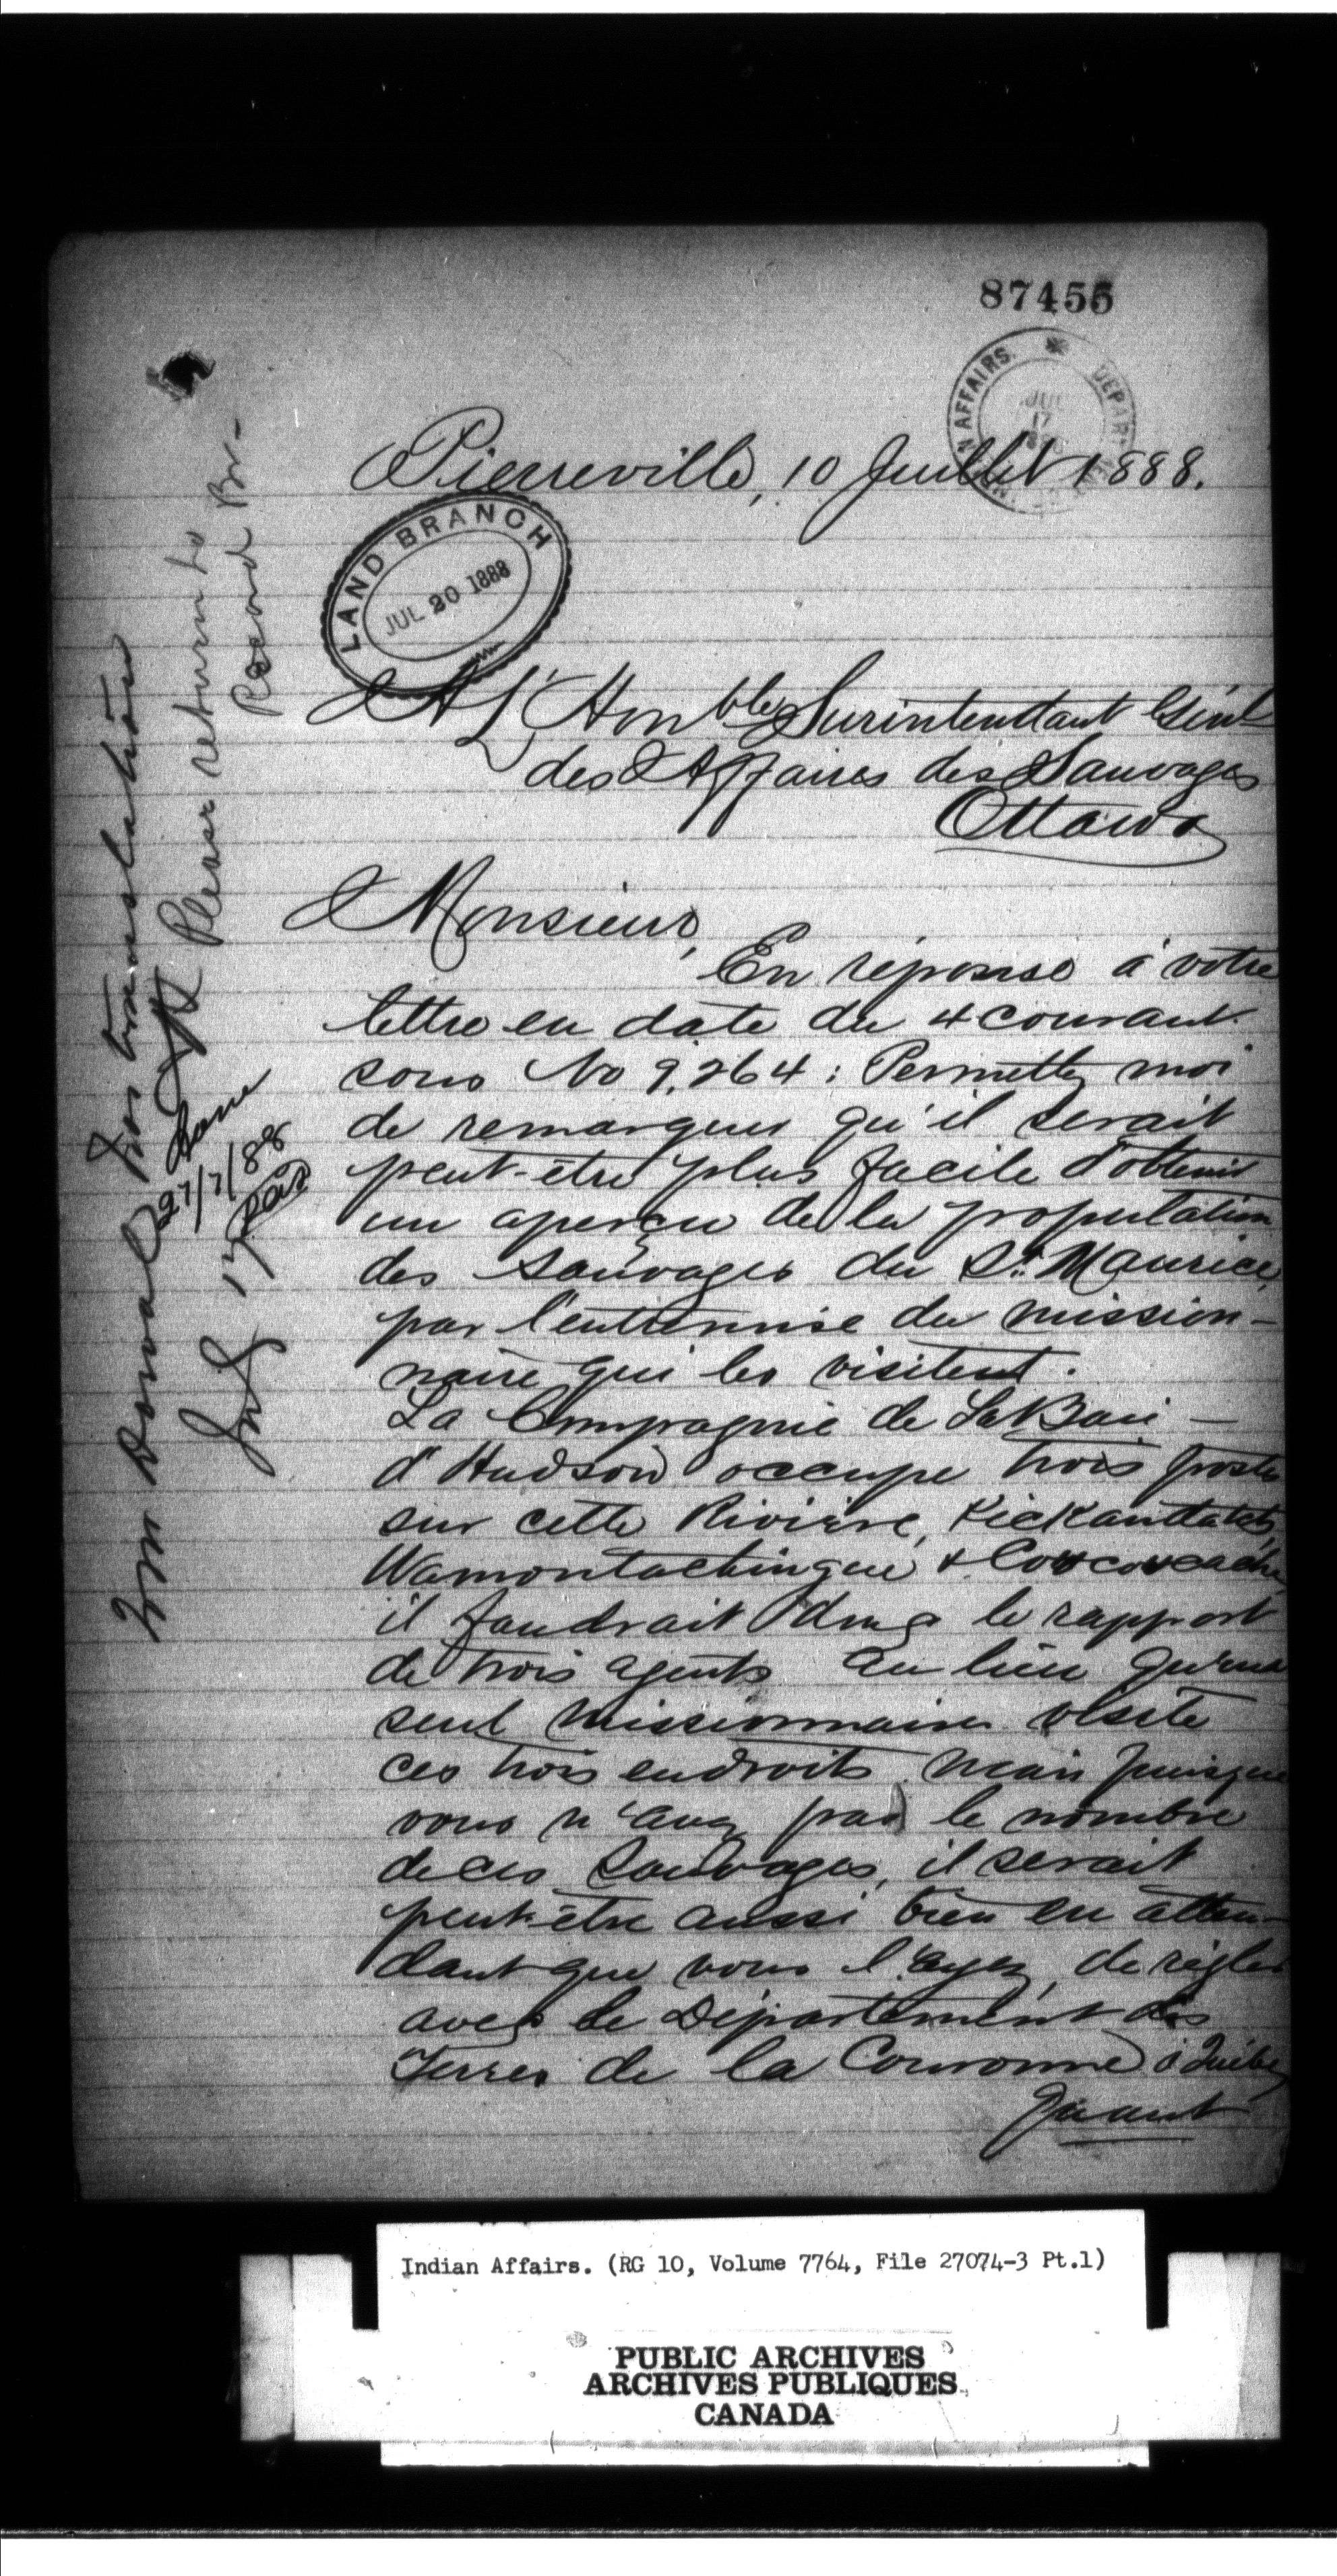 87455
DEPAR AFFAIRS.
JUL
17
Pierreville, 10 Juillet 1888.
LAND BRANCH
JUL 20 1888
A L'Honble Surintendant Génl
des Affaires des Sauvages
Ottawa
Monsieur,
En réponse à votre
lettre en date du 4 courant
sous No 9,264 : Permettez moi
de remarquer qu'il serait
peut-être plus facile d'obtenir
un aperçu de la population
des Sauvages du St. Maurice,
par l'entremise du mission-
naire qui les visitent.
La Compagnie de La Baie -
d'Hudson occupe trois postes
sur cette Rivière, Kickandatch,
Wamontachingue & Coucoucache,
il faudrait donc le rapport
de trois agents au lieu qu'un
seul missionnaire visite
ces trois endroits. Mais puisque
vous n'avez pas le nombre
de ces Sauvages, il serait
peut-être aussi bien en atten-
dant que vous l'ayez, de régler
avec le Département des
Terres de la Couronne à Québec
Quant
Mr Dorval for translation
Please return to
Record Br-
Done
27/7/88
July 17
Indian Affairs. (RG 10, Volume 7764, File 27074-3 Pt.1)
PUBLIC ARCHIVES
ARCHIVES PUBLIQUES
CANADA